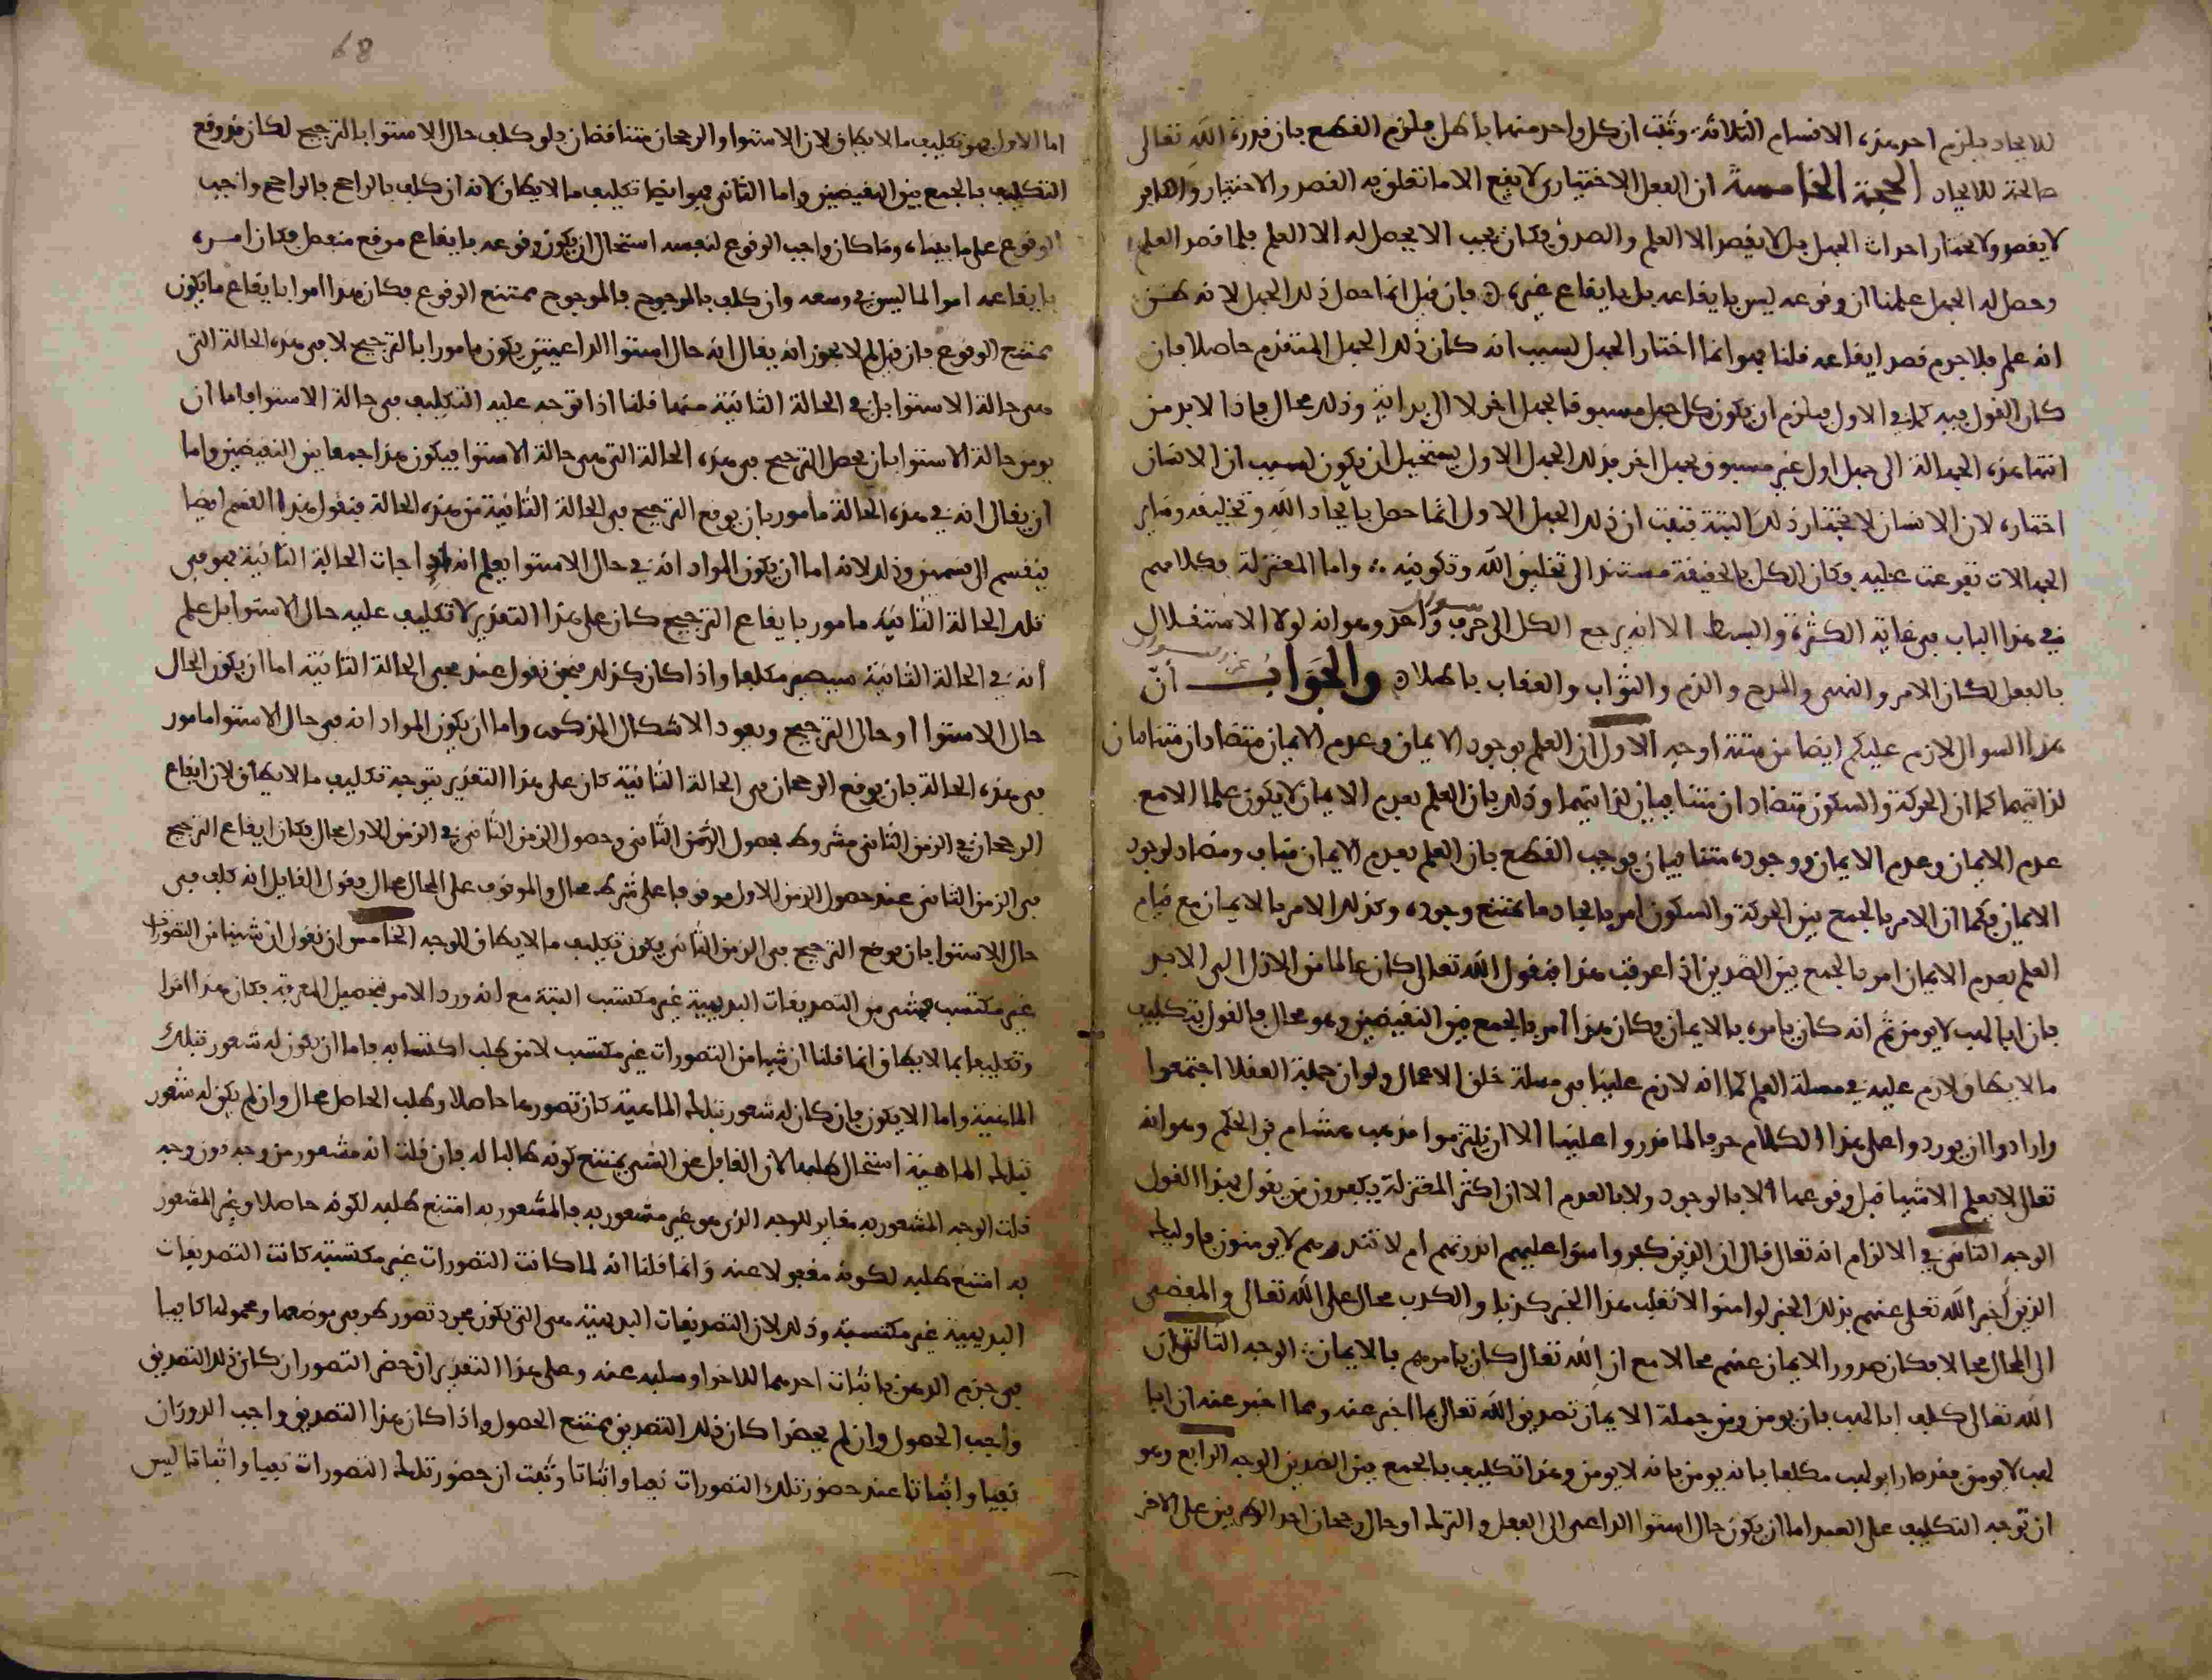 للايجاد فيلزم احد هذه الاقسام الثلاثة وثبت ان كل واحد منها باطل فيلزم القطع بان قدرة الله تعالى
صالحة للايجاد الحجة الخامسة ان الفعل الاختيارى لا يقع الا ما تعلق به القصد والاختيار والكافر
لا يقصد ولا يختار احداث الجهل بل لا يقصد الا العلم والصدق فكان يجب الا يحصل له الا العلم فلما قصد العلم
وحصل له الجهل علمنا ان وقوعه ليس بايقاعه بل بايقاع غيره فان قيل انما حصل ذلك الجهل لانه ظن
انه علم فلا جرم قصد ايقاعه قلنا فهو انما اختار الجهل بسبب انه كان ذلك الجهل المتقدم حاصلا فان
كان القول فيه كما في الاول فيلزم ان يكون كل جهل مسبوقا بجهل اخر لا الى بداية وذلك محال فاذا لا بد من
انتها هذه الجهالة الى جهل اول غير مسبوق بجهل اخر فذلك الجهل الاول يستحيل ان يكون بسبب ان الانسان
اختاره لان الانسان لا يختار ذلك البتة فثبت ان ذلك الجهل الاول انما حصل بايجاد الله وتخليقه وساير
الجهالات تفرعت عليه فكان الكل بالحقيقة مستندا الى تخليق الله وتكوينه واما المعتزلة فكلامهم
في هذا الباب في غاية الكثرة والبسط الا انه يرجع الكل الى حرف واحد وهو انه لولا الاستقلال
بالفعل لكان الامر والنهى والمدح والذم والثواب والعقاب باطلا والجواب ان
هذا السوال لازم عليكم ايضا من ستة اوجه الاول ان العلم بوجود الايمان وعدم الايمان متضادان متنافيان
لذاتيهما كما ان الحركة والسكون متضادان متنافيان لذاتيهما وذلك بان العلم بعدم الايمان لا يكون علما الا مع
عدم الايمان وعدم الايمان ووجوده متنافيان فوجب القطع بان العلم بعدم الايمان مناف ومضاد لوجود
الايمان فكما ان الامر بالجمع بين الحركة والسكون امر بايجاد ما يمتنع وجوده وكذلك الامر بالايمان مع قيام
العلم بعدم الايمان امر بالجمع بين الضدين اذا عرفت هذا فنقول الله تعالى كان عالما من الازل الى الابد
بان ابا لهب لا يومن ثم انه كان يامره بالايمان فكان هذا امر بالجمع بين النقيضين وهو محال فالقول بتكليف
ما لا يطاق لازم عليه في مسلة العلم كما انه لازم علينا في مسلة خلق الاعمال ولو ان جملة العقلا اجتمعوا
وارادوا ان يوردوا على هذا الكلام حرفا لما قدروا عليه الا ان يلتزموا مذهب هشام بن الحكم وهو انه
تعالى لا يعلم الاشيا قبل وقوعها لا بالوجود ولا بالعدم الا ان اكثر المعتزلة يكفرون من يقول بهذا القول
الوجه الثانى في الالزام انه تعالى قال ان الذين كفروا سوا عليهم انذرتهم ام لا تنذرهم لا يومنون فاوليك
الذين اخبر الله تعلى عنهم بذلك الخبر لو امنوا لانقلب هذا الخبر كذبا والكذب محال على الله تعالى والمفضى
الى المحال محال فكان صدور الايمان عنهم محالا مع ان الله تعالى كان يامرهم بالايمان الوجه الثالث ان
الله تعالى كلف ابا لهب بان يومن ومن جملة الايمان تصديق الله تعالى بما اخبر عنه ومما اخبر عنه ان ابا
لهب لا يومن فقد صار ابو لهب مكلفا بانه يومن بانه لا يومن وهذا تكليف بالجمع بين الضدين الوجه الرابع وهو
ان توجه التكليف على العبد اما ان يكون حال استوا الداعى الى الفعل والترك او حال رجحان احد الطرفين على الاخر
68
اما الاول فهو تكليف ما لا يطاق لان الاستوا والرجحان متناقضان فلو كلف حال الاستوا بالترجيح لكان قد وقع
التكليف بالجمع بين النقيضين واما الثانى فهو ايضا تكليف ما لا يطاق لانه ان كلف بالراجح فالراجح واجب
الوقوع على ما بيناه وما كان واجب الوقوع لنفسه استحال ان يكون وقوعه بايقاع موقع منفصل فكان امره
بايقاعه امرا لما ليس في وسعه وان كلف بالمرجوح فالمرجوح ممتنع الوقوع فكان هذا امرا بايقاع ما يكون
ممتنع الوقوع فان قيل لم لا يجوز انه يقال انه حال استوا الداعيتين يكون مامورا بالترجيح لا في هذه الحالة التى
هى حالة الاستوا بل في الحالة الثانية منها قلنا اذا توجه عليه التكليف في حالة الاستوا فاما ان
يومر حالة الاستوا بان يحصل الترجيح في هذه الحالة التى هى حالة الاستوا فيكون هذا جمعا بين النقيضين واما
ان يقال انه في هذه الحالة مامور بان يوقع الترجيح في الحالة الثانية من هذه الحالة فنقول هذا القسم ايضا
ينقسم الى قسمين وذلك لانه اما ان يكون المراد انه في حال الاستوا يعلم انه اذا جات الحالة الثانية فهو في
تلك الحالة الثانية مامور بايقاع الترجيح كان على هذا التقدير لا تكليف عليه حال الاستوا بل علم
انه في الحالة الثانية سيصير مكلفا واذا كان كذلك فنحن نقول عند مجى الحالة الثانية اما ان يكون الحال
حال الاستوا او حال الترجيح ويعود الاشكال المذكور واما ان يكون المراد انه في حال الاستوا مامور
في هذه الحالة بان يوقع الرجحان في الحالة الثانية كان على هذا التقدير يتوجه تكليف ما لا يطاق لان ايقاع
الرجحان في الزمن الثانى مشروط بحصول الزمن الثانى وحصول الزمن الثانى في الزمن الاول محال فكان ايقاع الترجيح
فى الزمن الثانى عند حصول الزمن الاول موقوفا على شرط محال والموقوف على المحال محال فقول القايل انه كلف فى
حال الاستوا بان يوقع الترجيح فى الزمن الثانى يكون تكليف ما لا يطاق الوجه الخامس ان نقول ان شيئا من التصورات
غير مكتسب فشى من التصديقات البديهية غير مكتسب البتة مع انه ورد الامر بتحصيل المعرفة فكان هذا امرا
وتكليفا بما لا يطاق انما قلنا ان شيا من التصورات غير مكتسب لان من طلب اكتسابه فاما ان يكون له شعور بتلك
الماهية واما الا يكون فان كان له شعور بتلك الماهية كان تصورها حاصلا وطلب الحاصل محال وان لم يكن له شعور
بتلك الماهية استحال طلبها لان الغافل عن الشى يمتنع كونه طالبا له فان قلت انه مشعور من وجه دون وجه
قلت الوجه المشعور به مغاير للوجه الذى هو غير مشعور به فالمشعور به امتنع طلبه لكونه حاصلا وغير المشعور
به امتنع طلبه لكونه مغفولا عنه وانما قلنا انه لما كانت التصورات غير مكتسبة كانت التصديقات
البديهية غير مكتسبة وذلك لان التصديقات البديهية هى التى يكون مجرد تصور طرفى موضعها ومحمولها كافيا
في جزم الذهن باثبات احدهما للاخر او سلبه عنه وعلى هذا التقدير ان حضر التصوران كان ذلك التصديق
واجب الحصول وان لم يحضرا كان ذلك التصديق ممتنع الحصول واذا كان هذا التصديق واجب الدوران
نفيا واثباتا عند حضور تلك التصورات نفيا واثباتا وثبت ان حضور تلك التصورات نفيا واثباتا ليس